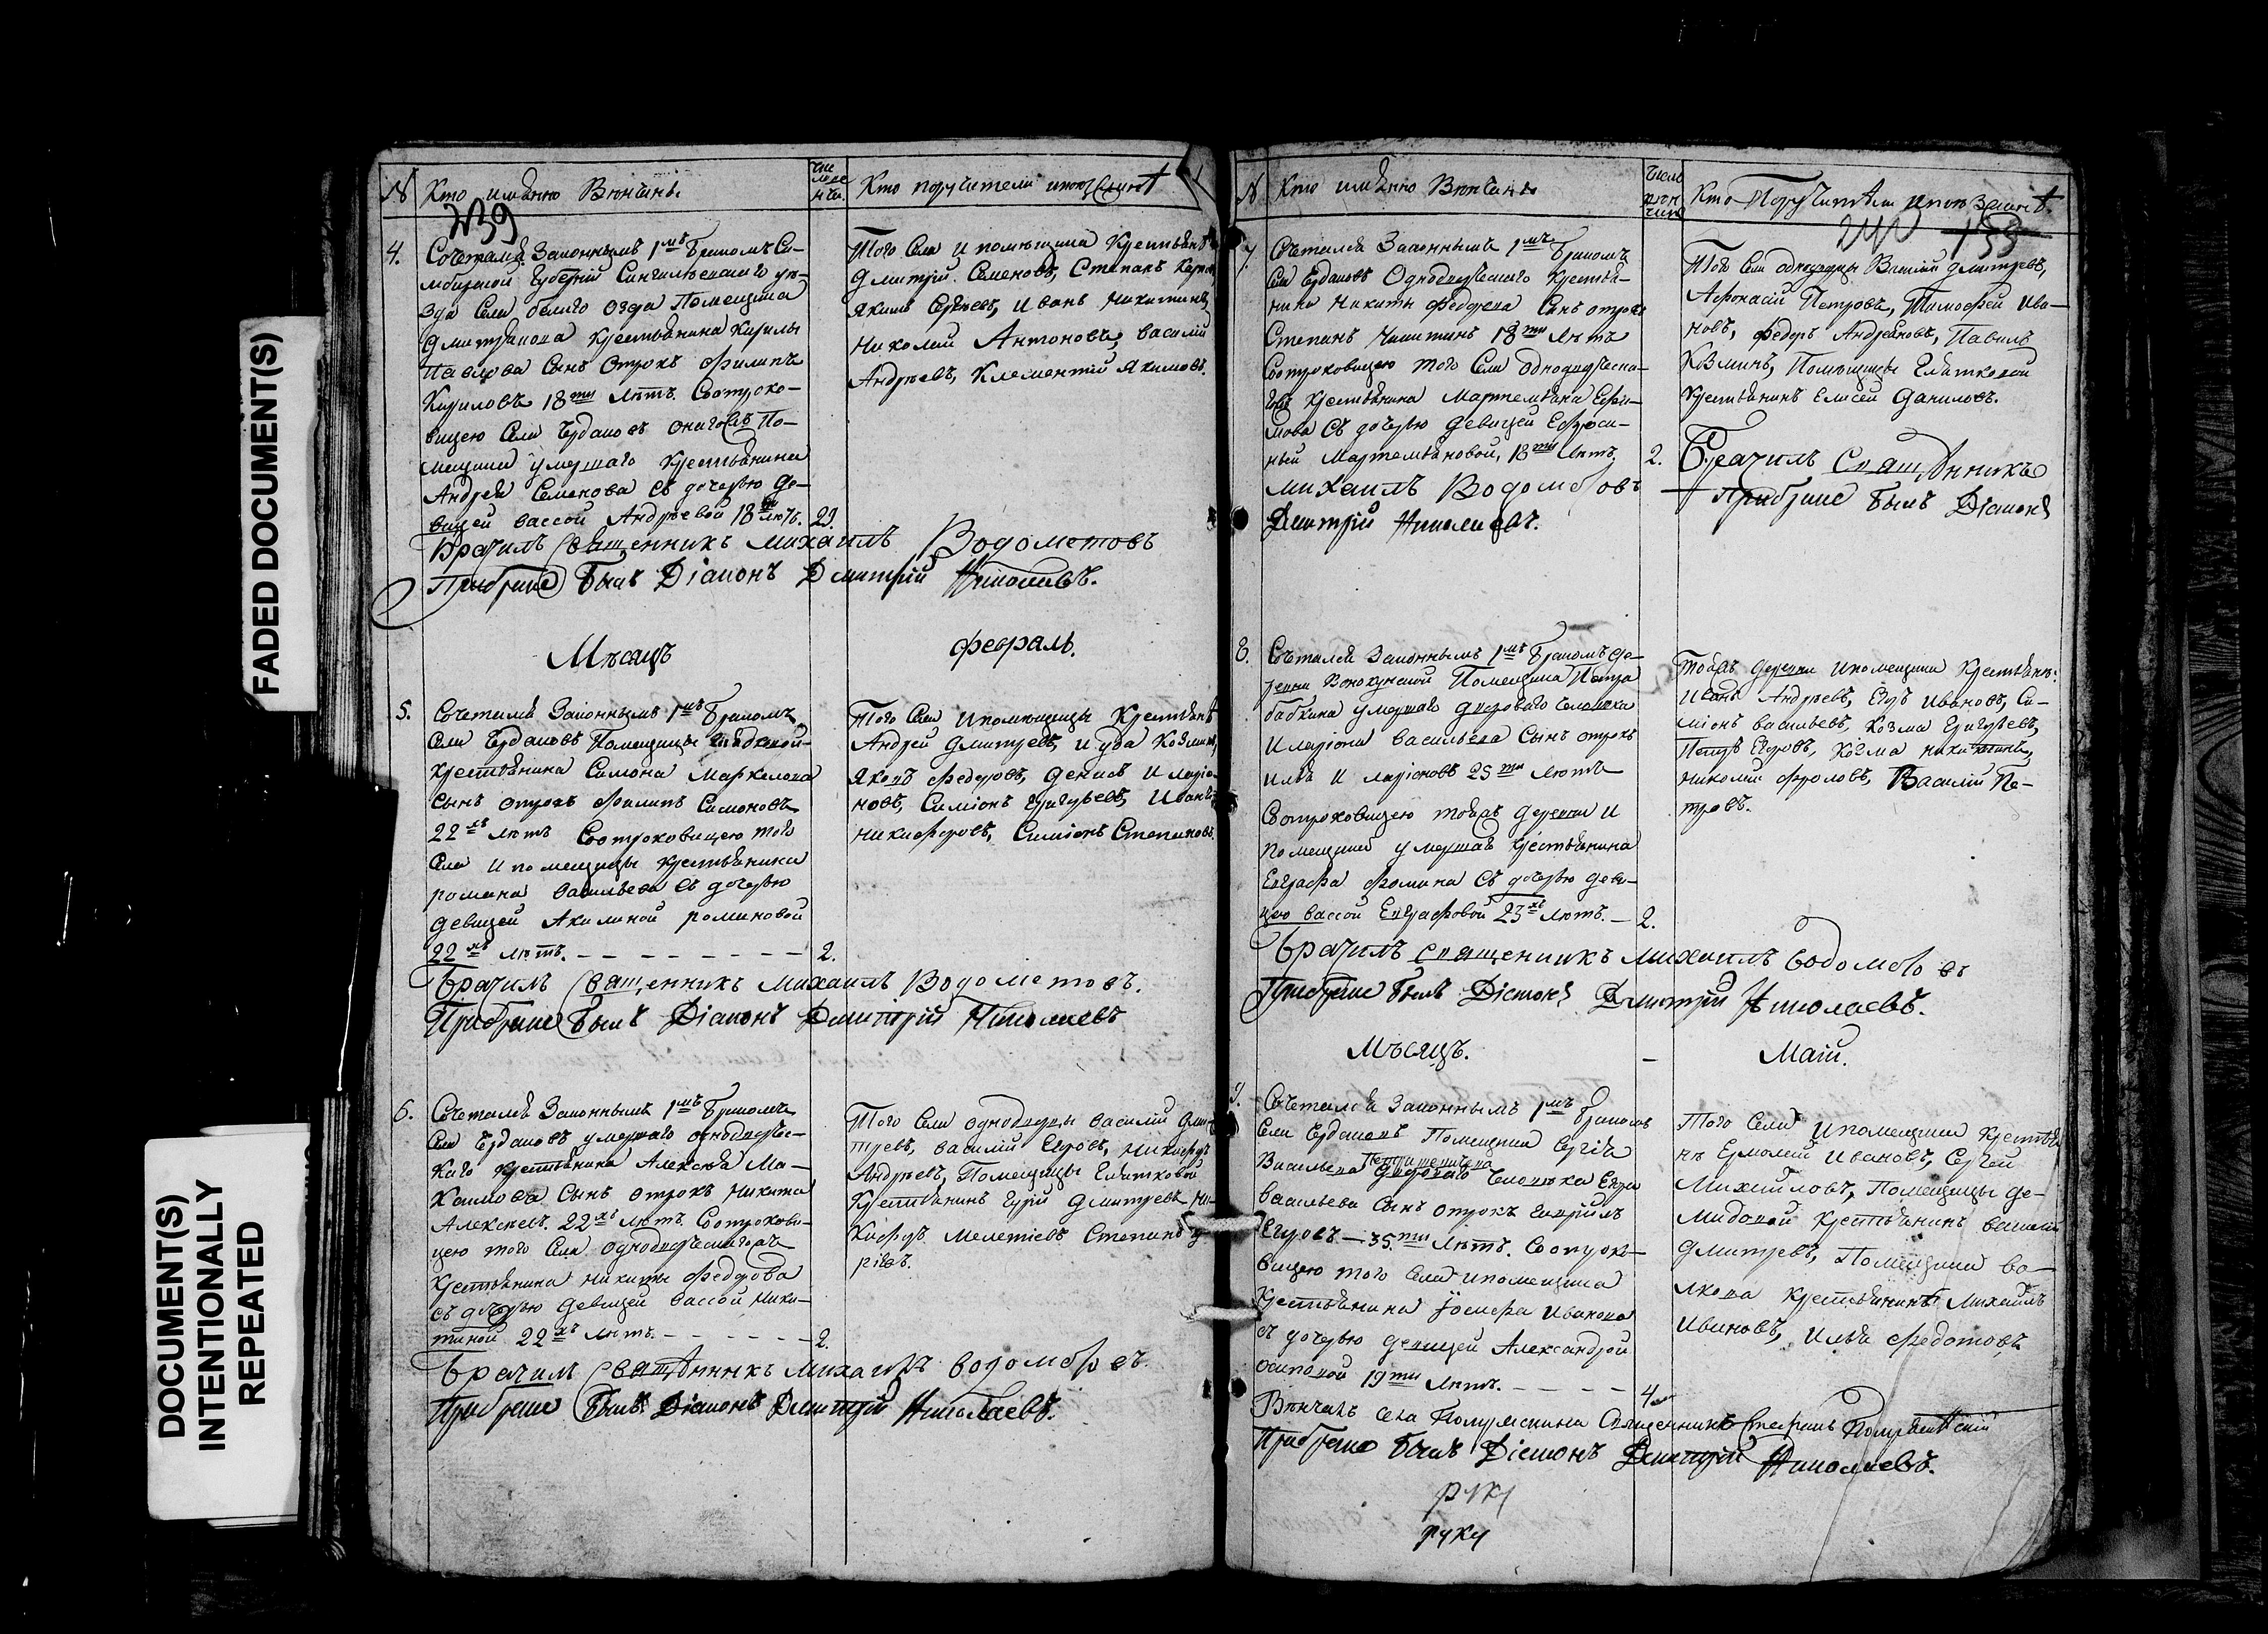 FADED DOCUMENT(S)
DOCUMENT(S)
INTENTIONALLY
REPEATED
№ Кто имѣнно Вѣнчанъ.
Кто поручители
239
4. Сочетался Законнымъ 1мъ бракомъ Си-
мбирской Губернiи Сингилѣевскаго уѣ-
зда Села белаго озда Помещика
Дмитрiева Крестьянина Кирилы
Павлова Сынъ Отрокъ Филипъ
Кириловъ 18ти лѣтъ. Сотроко-
вицею Села Ердаковъ онагожъ По-
мещика умершаго Крестьянина
Андрея Семенова съ дочерью де-
вицей вассой Андрѣевой 18ти лѣтъ. 29.
Того Села И помѣщика Крестьянѣ
Дмитрiй Семеновъ, Степанъ
Якимъ Сергѣевъ, Иванъ Никитинъ,
Николай Антоновъ, василiй
Андрѣевъ, Климентiй Якимовъ.
Брачилъ Священникъ Михаилъ Водометовъ
Прибраке былъ Дiаконъ Дмитрiй Николаевъ.
Мѣсяцъ февраль.
5. Сочетался Законнымъ 1мъ бракомъ
Села Ердаковъ Помещицы
крестьянина Симона Маркелова
сынъ отрокъ Филипъ Симоновъ
22хъ лѣтъ Сотроковицею того
Села И помещицы крестьянина
романа васильева съ дочерью
девицей Акилиной романовой
22хъ лѣтъ. – – – – – – – – 2.
Того Села Ипомѣщицы Крестьянѣ
Андрей Дмитрiевъ, Иуда Козминъ,
Яковъ Федоровъ, Денисъ Иларiо-
новъ, Симiонъ Григорьевъ, Иванъ
Никифоровъ, Симiонъ Степановъ.
Брачилъ Священникъ Михаилъ Водометовъ.
Прибраке былъ Дiаконъ Дмитрiй Николаевъ
6. Сочетался Законнымъ 1мъ бракомъ
Села Ердаковъ умершаго однодворчес-
каго крестьянина Алексея Ма-
Каимова Сынъ отрокъ Никита
Алексеевъ. 22хъ лѣтъ. Сотрокови-
цею того Села однодворческагожъ
крестьянина Никиты Федорова
съ дочерью девицей вассой Ники-
тиной 22хъ лѣтъ. – – – – – – 2.
Того Села однодворцы василiй Дми-
трiевъ, василiй Егоровъ, Никифоръ
Андрѣевъ, Помещицы
Крестьянинъ Гурiй Дмитрiевъ Ни-
Кифоръ Мелетiевъ Степанъ
Брачилъ Священникъ Михаилъ водометовъ.
Прибраке былъ Дiаконъ Дмитрiй Николаевъ.
№ Кто имѣнно Вѣнчанъ
Кто Поручители
240 159
7. Сочетался Законнымъ 1мъ бракомъ
Села Ердаковъ Однодворческаго Крестья-
нина Никиты Федорова Сынъ отрокъ
Степанъ Никитинъ 18ти лѣтъ
Сотроковицею того Села однодворческа-
гожъ крестьянина Мартемьяна Ефи-
мова съ дочерью девицей Ефроси-
ньей Мартемьяновой, 18ти лѣтъ. 2.
Того Села однодворцы Василiй Дмитрiевъ,
Афонасiй Петровъ, Тимофей Ива-
новъ, Федоръ Андреяновъ, Павилъ
Козминъ, Помѣщицы
Крестьянинъ Елисей Даниловъ.
Брачилъ Священникъ
Михаилъ Водометовъ Прибраке былъ Дiаконъ
Дмитрiй Николаевъ.
8. Сочетался Законнымъ 1мъ бракомъ де-
ревни Помещика Петра
бабкина умершаго дворового Человека
Иларiона васильева Сынъ отрокъ
Илья Иларiоновъ 25ти лѣтъ
Сотроковицею тойжъ деревни И
помещика умершаго крестьянина
Евграфа Фомина съ дочерью деви-
цею вассой Евграфовой 23хъ лѣтъ. – 2.
Тойжъ деревни Ипомещика Крестьянѣ:
Иванъ Андрѣевъ, Егоръ Ивановъ, Си-
мiонъ васильевъ, Козма Григорьевъ,
Петръ Егоровъ, Козма Никитинъ,
Николай Фроловъ, Василiй Пе-
тровъ.
Брачилъ Священникъ Михаилъ Водометовъ
Прибраке былъ Дiаконъ Дмитрiй Николаевъ.
Мѣсяцъ. – Маiй.
9. Сочетался Законнымъ 1мъ бракомъ
Села Ердаковъ Помещика Сергѣя
Васильева дворового Человека Егора
васильева Сынъ отрокъ Гаврiилъ
Егоровъ – 35.ти лѣтъ. Сотроко-
вицею того Села Ипомещика
крестьянина Iосифа Иванова
съ дочерью девицей Александрой
Осиповой 19ти лѣтъ. – – – – 4.
Того Села Ипомещика Крестья
нѣ Ермолай Ивановъ, Сергей
Михайловъ, Помещицы Де-
мидовой Крестьянинъ василiй
Дмитрiевъ, Помещика во-
лкова крестьянинъ Михайла
Ивановъ, Илья Федотовъ
Вѣнчалъ села Священникъ Стефанъ
Прибраке былъ Дiаконъ Дмитрiй Николаевъ.
руку
руку